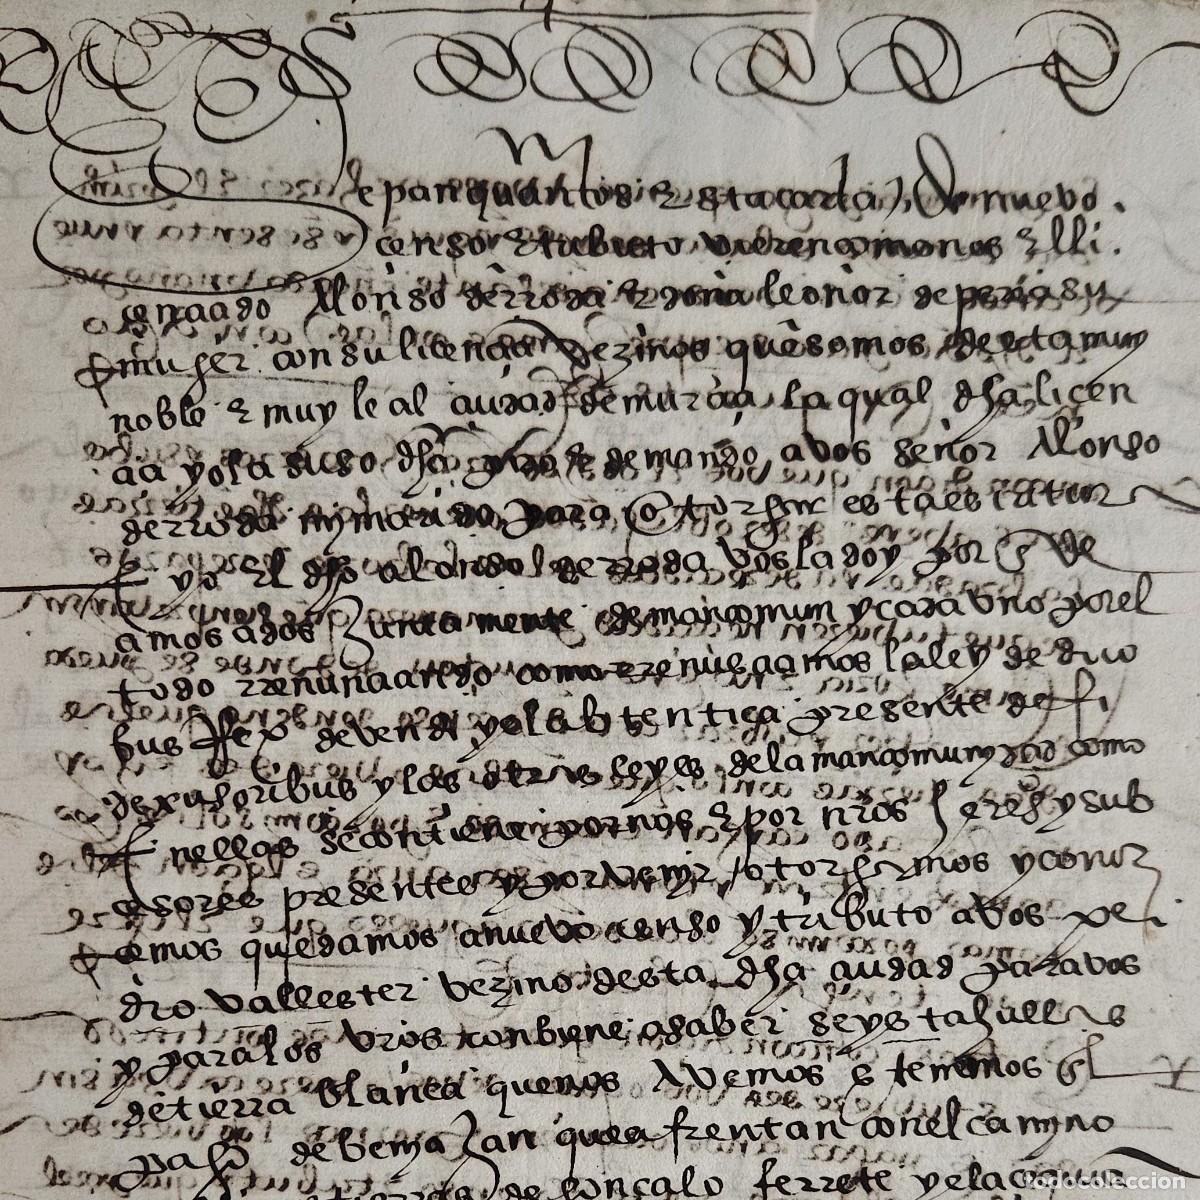 Sepan quantos esta carta de nuevo
çenso e tributo vieren como nos el li
cenciado Alonso de rroda e doña leonor de perea su
muger con su licencia vezinos que somos desta muy
noble e muy leal ciudad de murcia la qual dha licen
cia yo la suso dha pido e demando a vos señor Alonso
de rroda my marido para otorgar esta escritur
E yo El dho alonso de rroda vos la doy por
amos a dos Juntamente de mancomun y cada vno por el
todo rrenunciando como rrenunciamos la ley de duo
bus rrex devendi y el abtentica presente de fi
dexusoribus y las otras leyes de la mancomunydad como
En ellas se contiene por nos e por nros herеdos y sub
cesores presentes y por venyr otorgamos y conoz
cemos que damos a nuevo censo y tributo a vos pe
dro vallester vezino desta dha ciudad para vos
y para los vros conbiene a saber seys tahullas
de tierra blanca que nos Avemos e tenemos En el
pago de benyazan que afrentan con el camyno
tierras de gonçalo ferrete y el acequia
todocoleccion